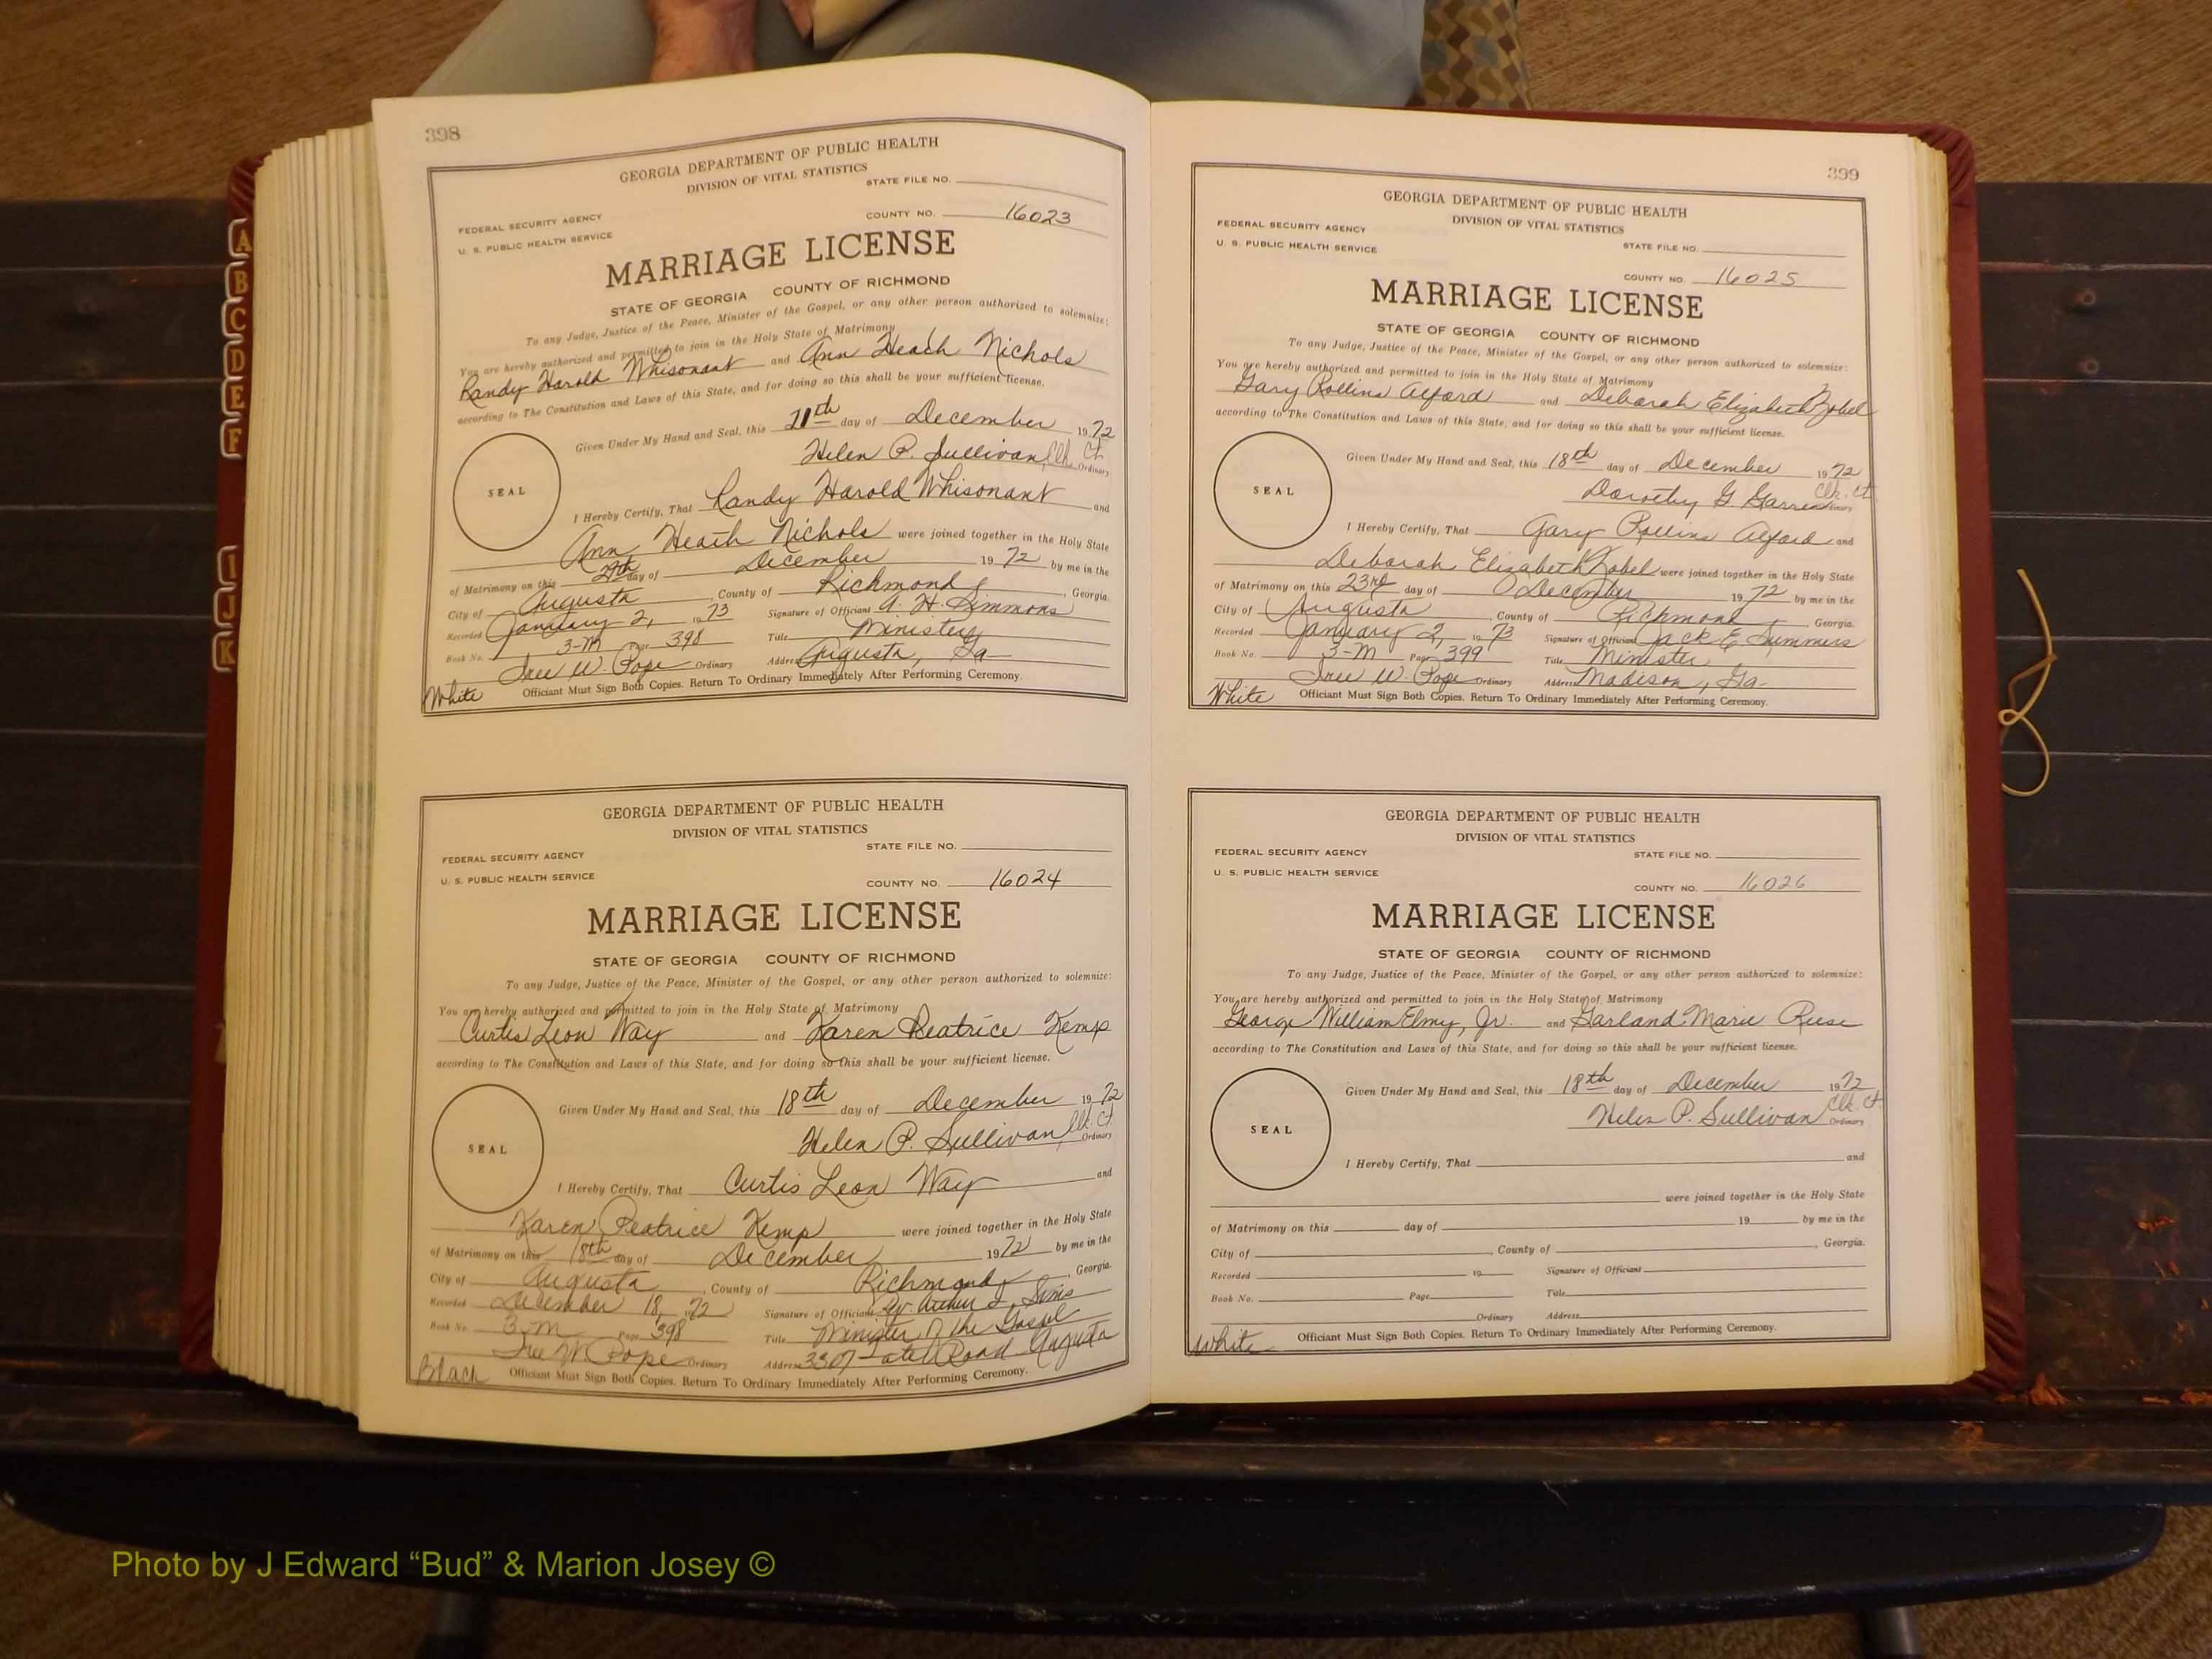 398
GEORGIA DEPARTMENT OF PUBLIC HEALTH
DIVISION OF VITAL STATISTICS
STATE FILE NO.
FEDERAL SECURITY AGENCY
U. S. PUBLIC HEALTH SERVICE
COUNTY NO. 16023
MARRIAGE LICENSE
STATE OF GEORGIA COUNTY OF RICHMOND
To any Judge, Justice of the Peace, Minister of the Gospel, or any other person authorized to solemnize:
You are hereby authorized and permitted to join in the Holy State of Matrimony
Randy Harold Whisonant and Ann Heath Nichols
according to The Constitution and Laws of this State, and for doing so this shall be your sufficient license.
Given Under My Hand and Seal, this day of December 1972
Helen P. Sullivan, Clk. Ct. Ordinary
SEAL
I Hereby Certify, That Randy Harold Whisonant and
Ann Heath Nichols were joined together in the Holy State
of Matrimony on this 29th day of December 1972 by me in the
City of Augusta, County of Richmond, Georgia.
Recorded January 2, 1973 Signature of Officiant A. H. Simmons
Book No. 3-M Page 398 Title Minister
W. Pope Ordinary Address Augusta, Ga
White Officiant Must Sign Both Copies. Return To Ordinary Immediately After Performing Ceremony.
GEORGIA DEPARTMENT OF PUBLIC HEALTH
DIVISION OF VITAL STATISTICS
STATE FILE NO.
FEDERAL SECURITY AGENCY
U. S. PUBLIC HEALTH SERVICE
COUNTY NO. 16024
MARRIAGE LICENSE
STATE OF GEORGIA COUNTY OF RICHMOND
To any Judge, Justice of the Peace, Minister of the Gospel, or any other person authorized to solemnize:
You are hereby authorized and permitted to join in the Holy State of Matrimony
Curtis Leon Way and Karen Beatrice Kemp
according to The Constitution and Laws of this State, and for doing so this shall be your sufficient license.
Given Under My Hand and Seal, this 18th day of December 1972
Helen P. Sullivan, Clk. Ct. Ordinary
SEAL
I Hereby Certify, That Curtis Leon Way and
Karen Beatrice Kemp were joined together in the Holy State
of Matrimony on this 18th day of December 1972 by me in the
City of Augusta, County of Richmond, Georgia.
Recorded December 18, 72 Signature of Officiant Sims
Book No. 3-M Page 398 Title Minister of the Gospel
W. Pope Ordinary Address 3307 Road Augusta
Black Officiant Must Sign Both Copies. Return To Ordinary Immediately After Performing Ceremony.
399
GEORGIA DEPARTMENT OF PUBLIC HEALTH
DIVISION OF VITAL STATISTICS
FEDERAL SECURITY AGENCY
U. S. PUBLIC HEALTH SERVICE
STATE FILE NO.
COUNTY NO. 16025
MARRIAGE LICENSE
STATE OF GEORGIA COUNTY OF RICHMOND
To any Judge, Justice of the Peace, Minister of the Gospel, or any other person authorized to solemnize:
You are hereby authorized and permitted to join in the Holy State of Matrimony
Gary Rollins Alford and Deborah Elizabeth Zobel
according to The Constitution and Laws of this State, and for doing so this shall be your sufficient license.
Given Under My Hand and Seal, this 18th day of December 1972
Dorothy G. Clk. Ct. Ordinary
SEAL
I Hereby Certify, That Gary Rollins Alford and
Deborah Elizabeth Zobel were joined together in the Holy State
of Matrimony on this 23rd day of December 1972 by me in the
City of Augusta, County of Richmond, Georgia.
Recorded January 2, 1973 Signature of Officiant Jack E. Summers
Book No. 3-M Page 399 Title Minister
W. Pope Ordinary Address Madison, Ga-
White Officiant Must Sign Both Copies. Return To Ordinary Immediately After Performing Ceremony.
GEORGIA DEPARTMENT OF PUBLIC HEALTH
DIVISION OF VITAL STATISTICS
FEDERAL SECURITY AGENCY
U. S. PUBLIC HEALTH SERVICE
STATE FILE NO.
COUNTY NO. 16026
MARRIAGE LICENSE
STATE OF GEORGIA COUNTY OF RICHMOND
To any Judge, Justice of the Peace, Minister of the Gospel, or any other person authorized to solemnize:
You are hereby authorized and permitted to join in the Holy State of Matrimony
George William Elmy, Jr. and Garland Marie
according to The Constitution and Laws of this State, and for doing so this shall be your sufficient license.
Given Under My Hand and Seal, this 18th day of December 1972
Helen P. Sullivan Clk. Ct. Ordinary
SEAL
I Hereby Certify, That and
were joined together in the Holy State
of Matrimony on this day of 19 by me in the
City of , County of , Georgia.
Recorded 19 Signature of Officiant
Book No. Page Title
Ordinary Address
White Officiant Must Sign Both Copies. Return To Ordinary Immediately After Performing Ceremony.
A
B
C
D
E
F
I
J
K
Photo by J Edward “Bud” & Marion Josey ©